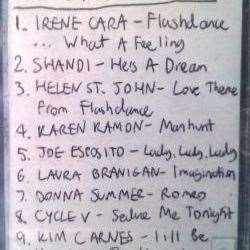 1. IRENE CARA - Flashdance
... What A Feeling
2. SHANDI - He's A Dream
3. HELEN ST. JOHN - Love Theme
From Flashdance
4. KAREN RAMON - Manhunt
5. JOE ESPOSITO - Lady, Lady, Lady
6. LAURA BRANIGAN - Imagination
7. DONNA SUMMER - Romeo
8. CYCLE V - Seduce Me Tonight
9. KIM CARNES - I'll Be